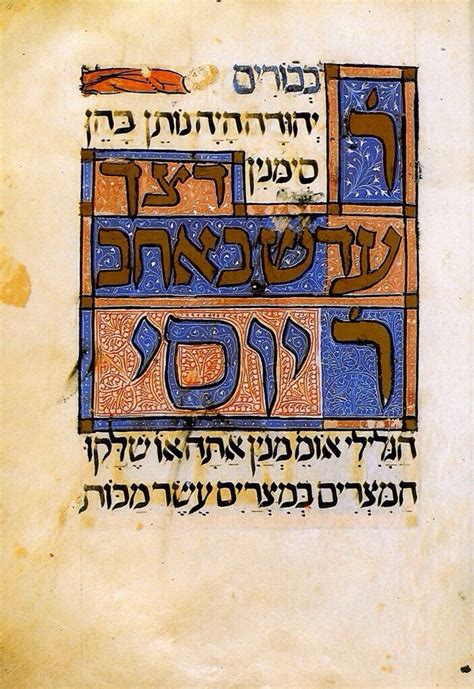 בכורים
ר׳
יהודה היה נותן בהן
סימנין
דצך
עדש באחב
ר׳ יוסי
הגלילי אומ׳ מנין אתה או׳ שלקו
המצרים במצרים עשר מכות